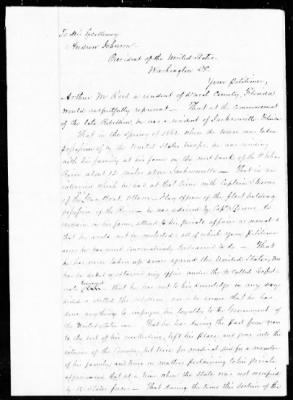 To His Excellency
Andrew Johnson
President of the United States
Washington D.C.
Your Petitioner,
Arthur M. Reed a resident of Duval County, Florida
would respectfully represent - That at the commencement
of the late Rebellion, he was a resident of Jacksonville Florida
That in the spring of 1862 when the town was taken
possession of by the United States troops, he was residing
with his family at his farm on the east bank of the St Johns
River about 12 miles above Jacksonville - That in an
interview which he had at that time with Captain
of the Gun Boat Ottawa - Flag Officer of the fleet holding
possession of the River - he was advised by Capt
to
remain on his farm, attend to his private affairs as usual &
that he would not be molested, all of which your petitioner
says he has most conscientiously endeavored to do - That
he has never taken up arms against the United States, nor
has he asked or obtained any office under the so called Confed-
erate - that he has not to his knowledge in any way
aided or abetted the rebellion, nor is he aware that he has
done anything to impugn his loyalty to the Government of
the United States - That he has during the past four years
to the best of his recollection, left his place and gone into the
interior of the Country, but twice for medical aid for a member
of his family, and twice on matters pertaining to his private
and that at a time when the State was not occupied
by U. States forces - That during the time this section of the